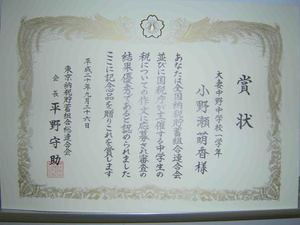 賞状
大妻中野中学校一学年
小野瀬萌香様
あなたは全国納税貯蓄組合連合会
並びに国税庁が主催する中学生の
税についての作文に応募され審査の
結果優秀であると認められました
ここに記念品を贈りこれを賞します
平成二十年九月二十六日
東京納税貯蓄組合総連合会
会長 平野守助